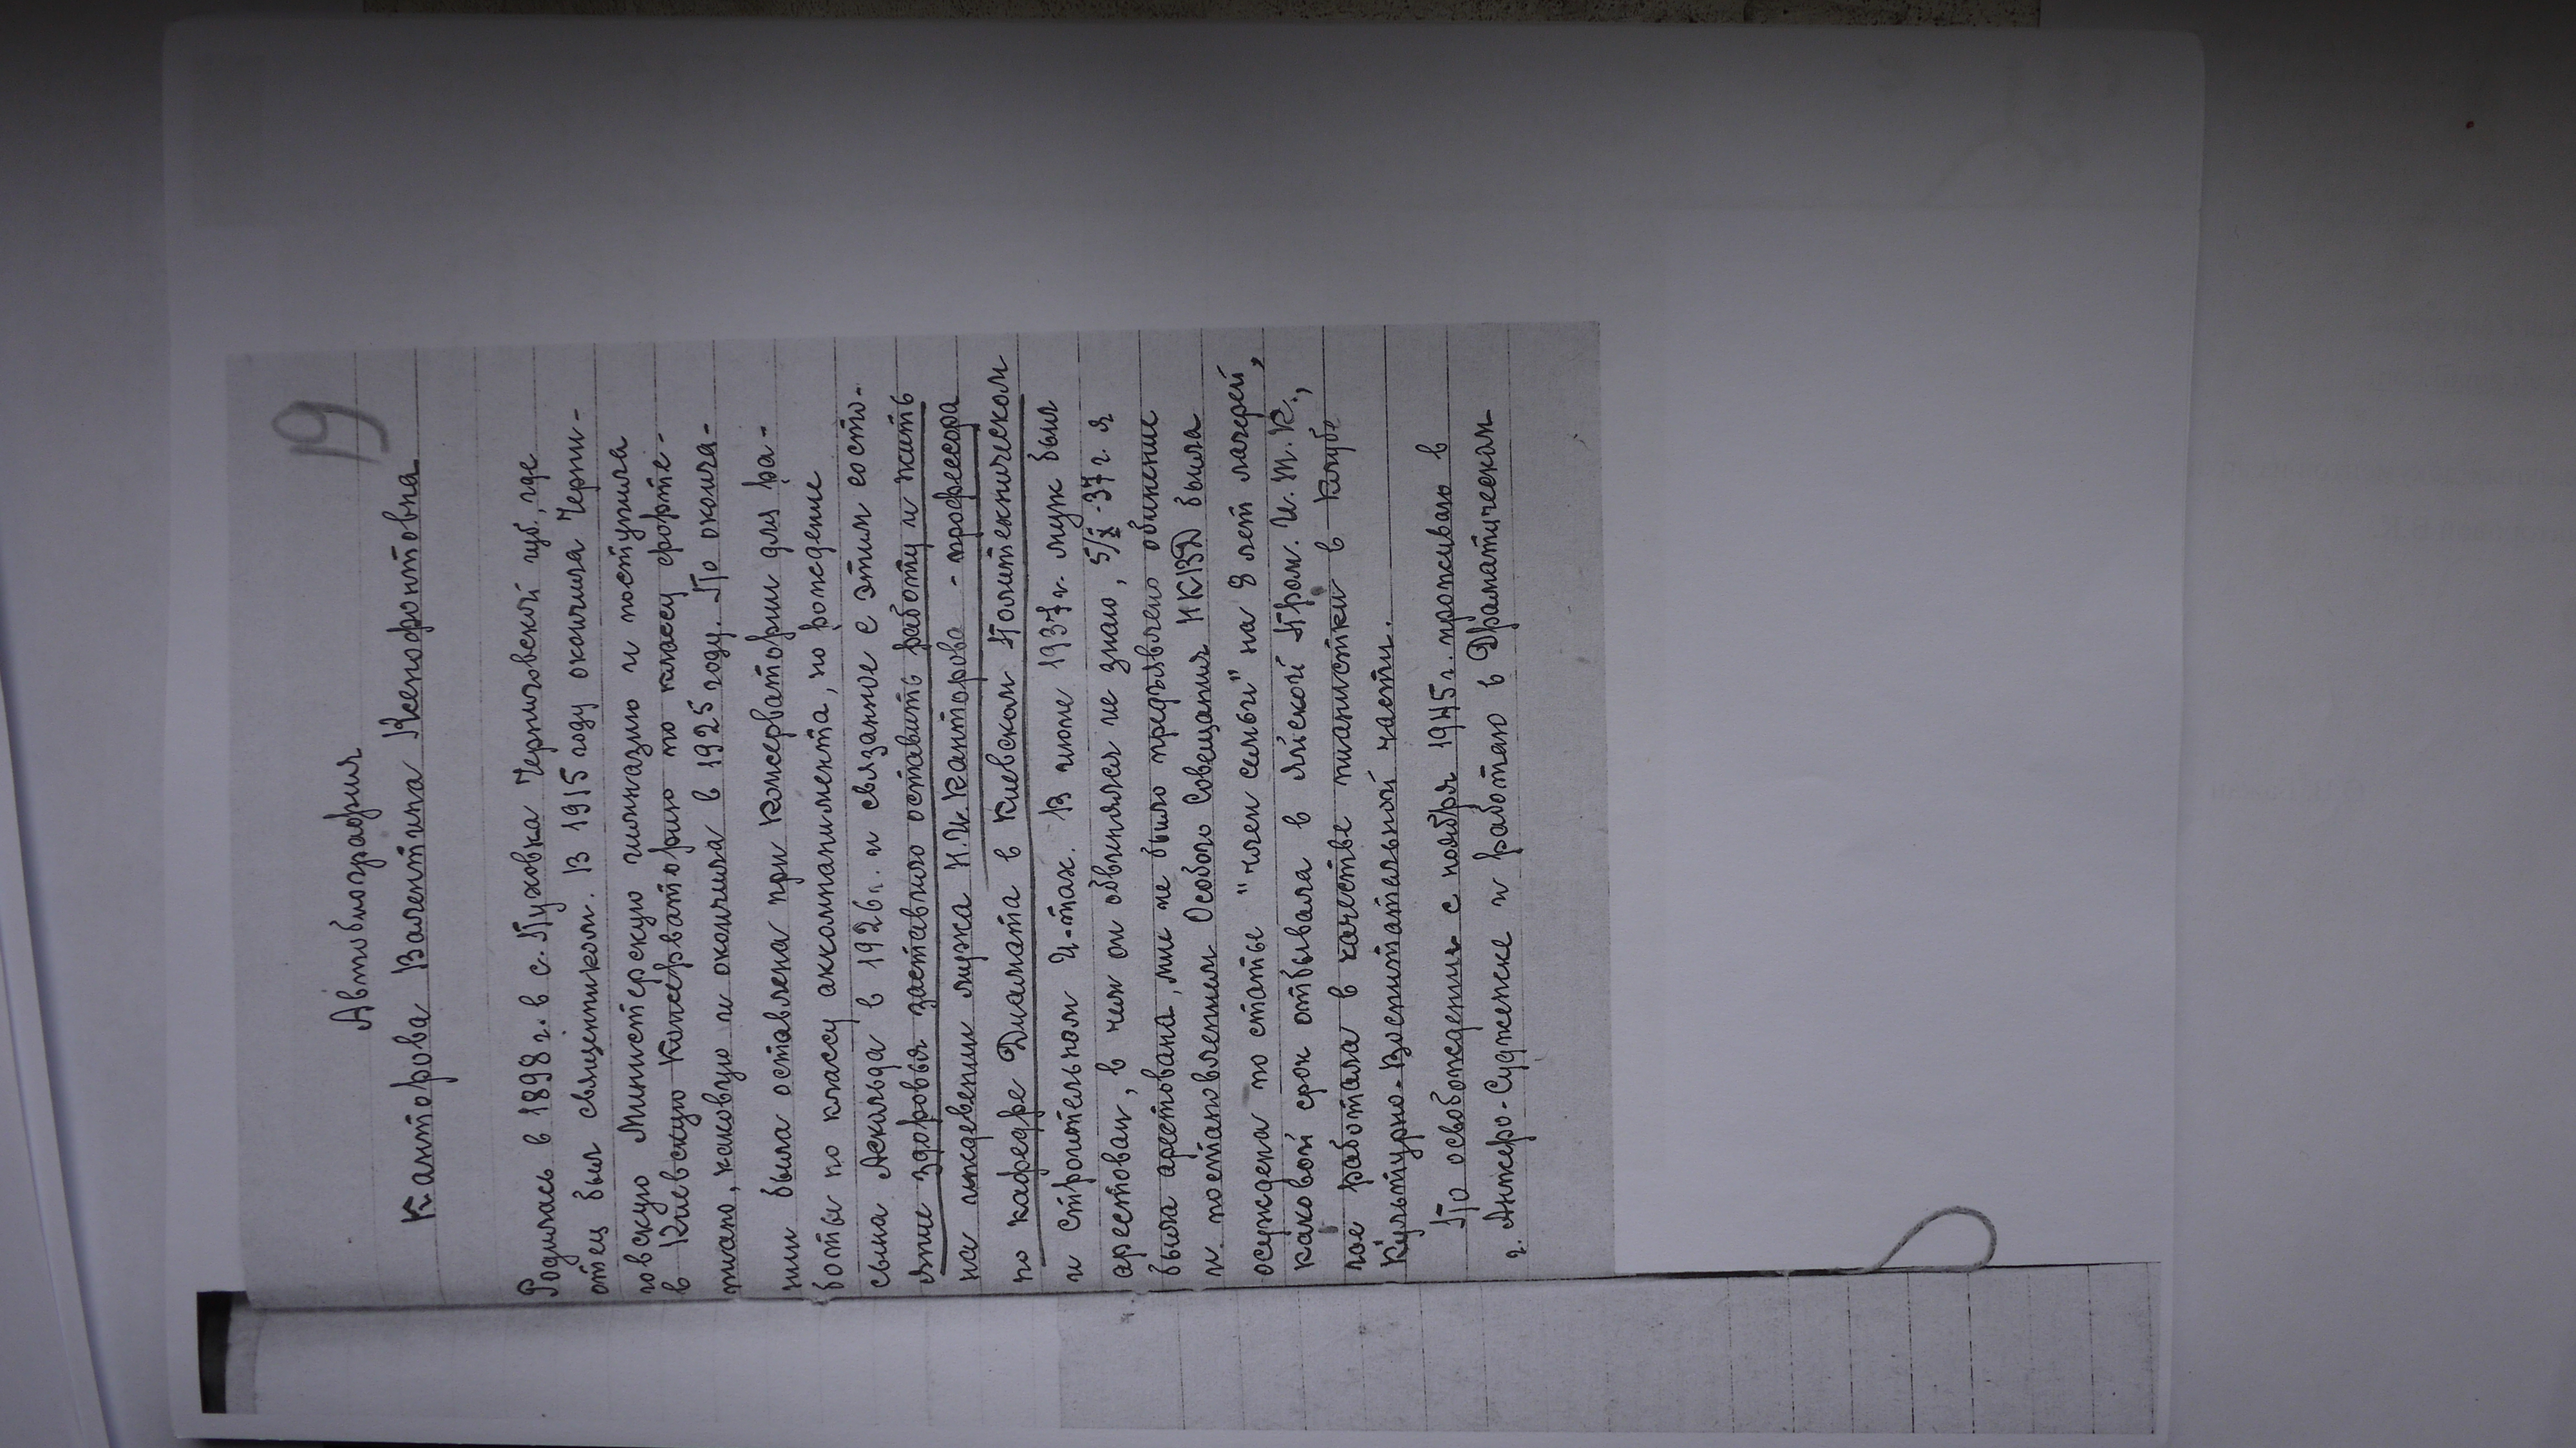 19
Автобиография
Канторова Валентина Ксенофонтовна
Родилась в 1898 г. в с. Пуховка Черниговской губ., где
отец был священником. В 1915 году окончила Черни-
говскую Министерскую гимназию и поступила
в Киевскую Консерваторию по классу форте-
пиано, каковую и окончила в 1925 году. По оконча-
нии была оставлена при Консерватории для ра-
боты по классу аккомпанимента, но рождение
сына Аскольда в 1926 г. и связанное с этим состо-
яние здоровья заставило оставить работу и жить
на иждевении мужа И.И. Канторова - профессора
по кафедре Диамата в Киевском Политехническом
и строительном И-тах. В июне 1937 г. муж был
арестован, в чем он обвинялся не знаю, 5/IX-37 г. я
была арестована, мне не было предъявлено обинение
и постановлением Особого Совещания НКВД была
осуждена по статье "член семьи" на 8 лет лагерей,
каковой срок отбывала в Яйской Пром. И.Т.К.,
где работала в качестве пианистки в клубе
Культурно-Воспитательной части.
По освобождении с ноября 1945 г. проживаю в
г. Анжеро-Судженске и работаю в Драматическом